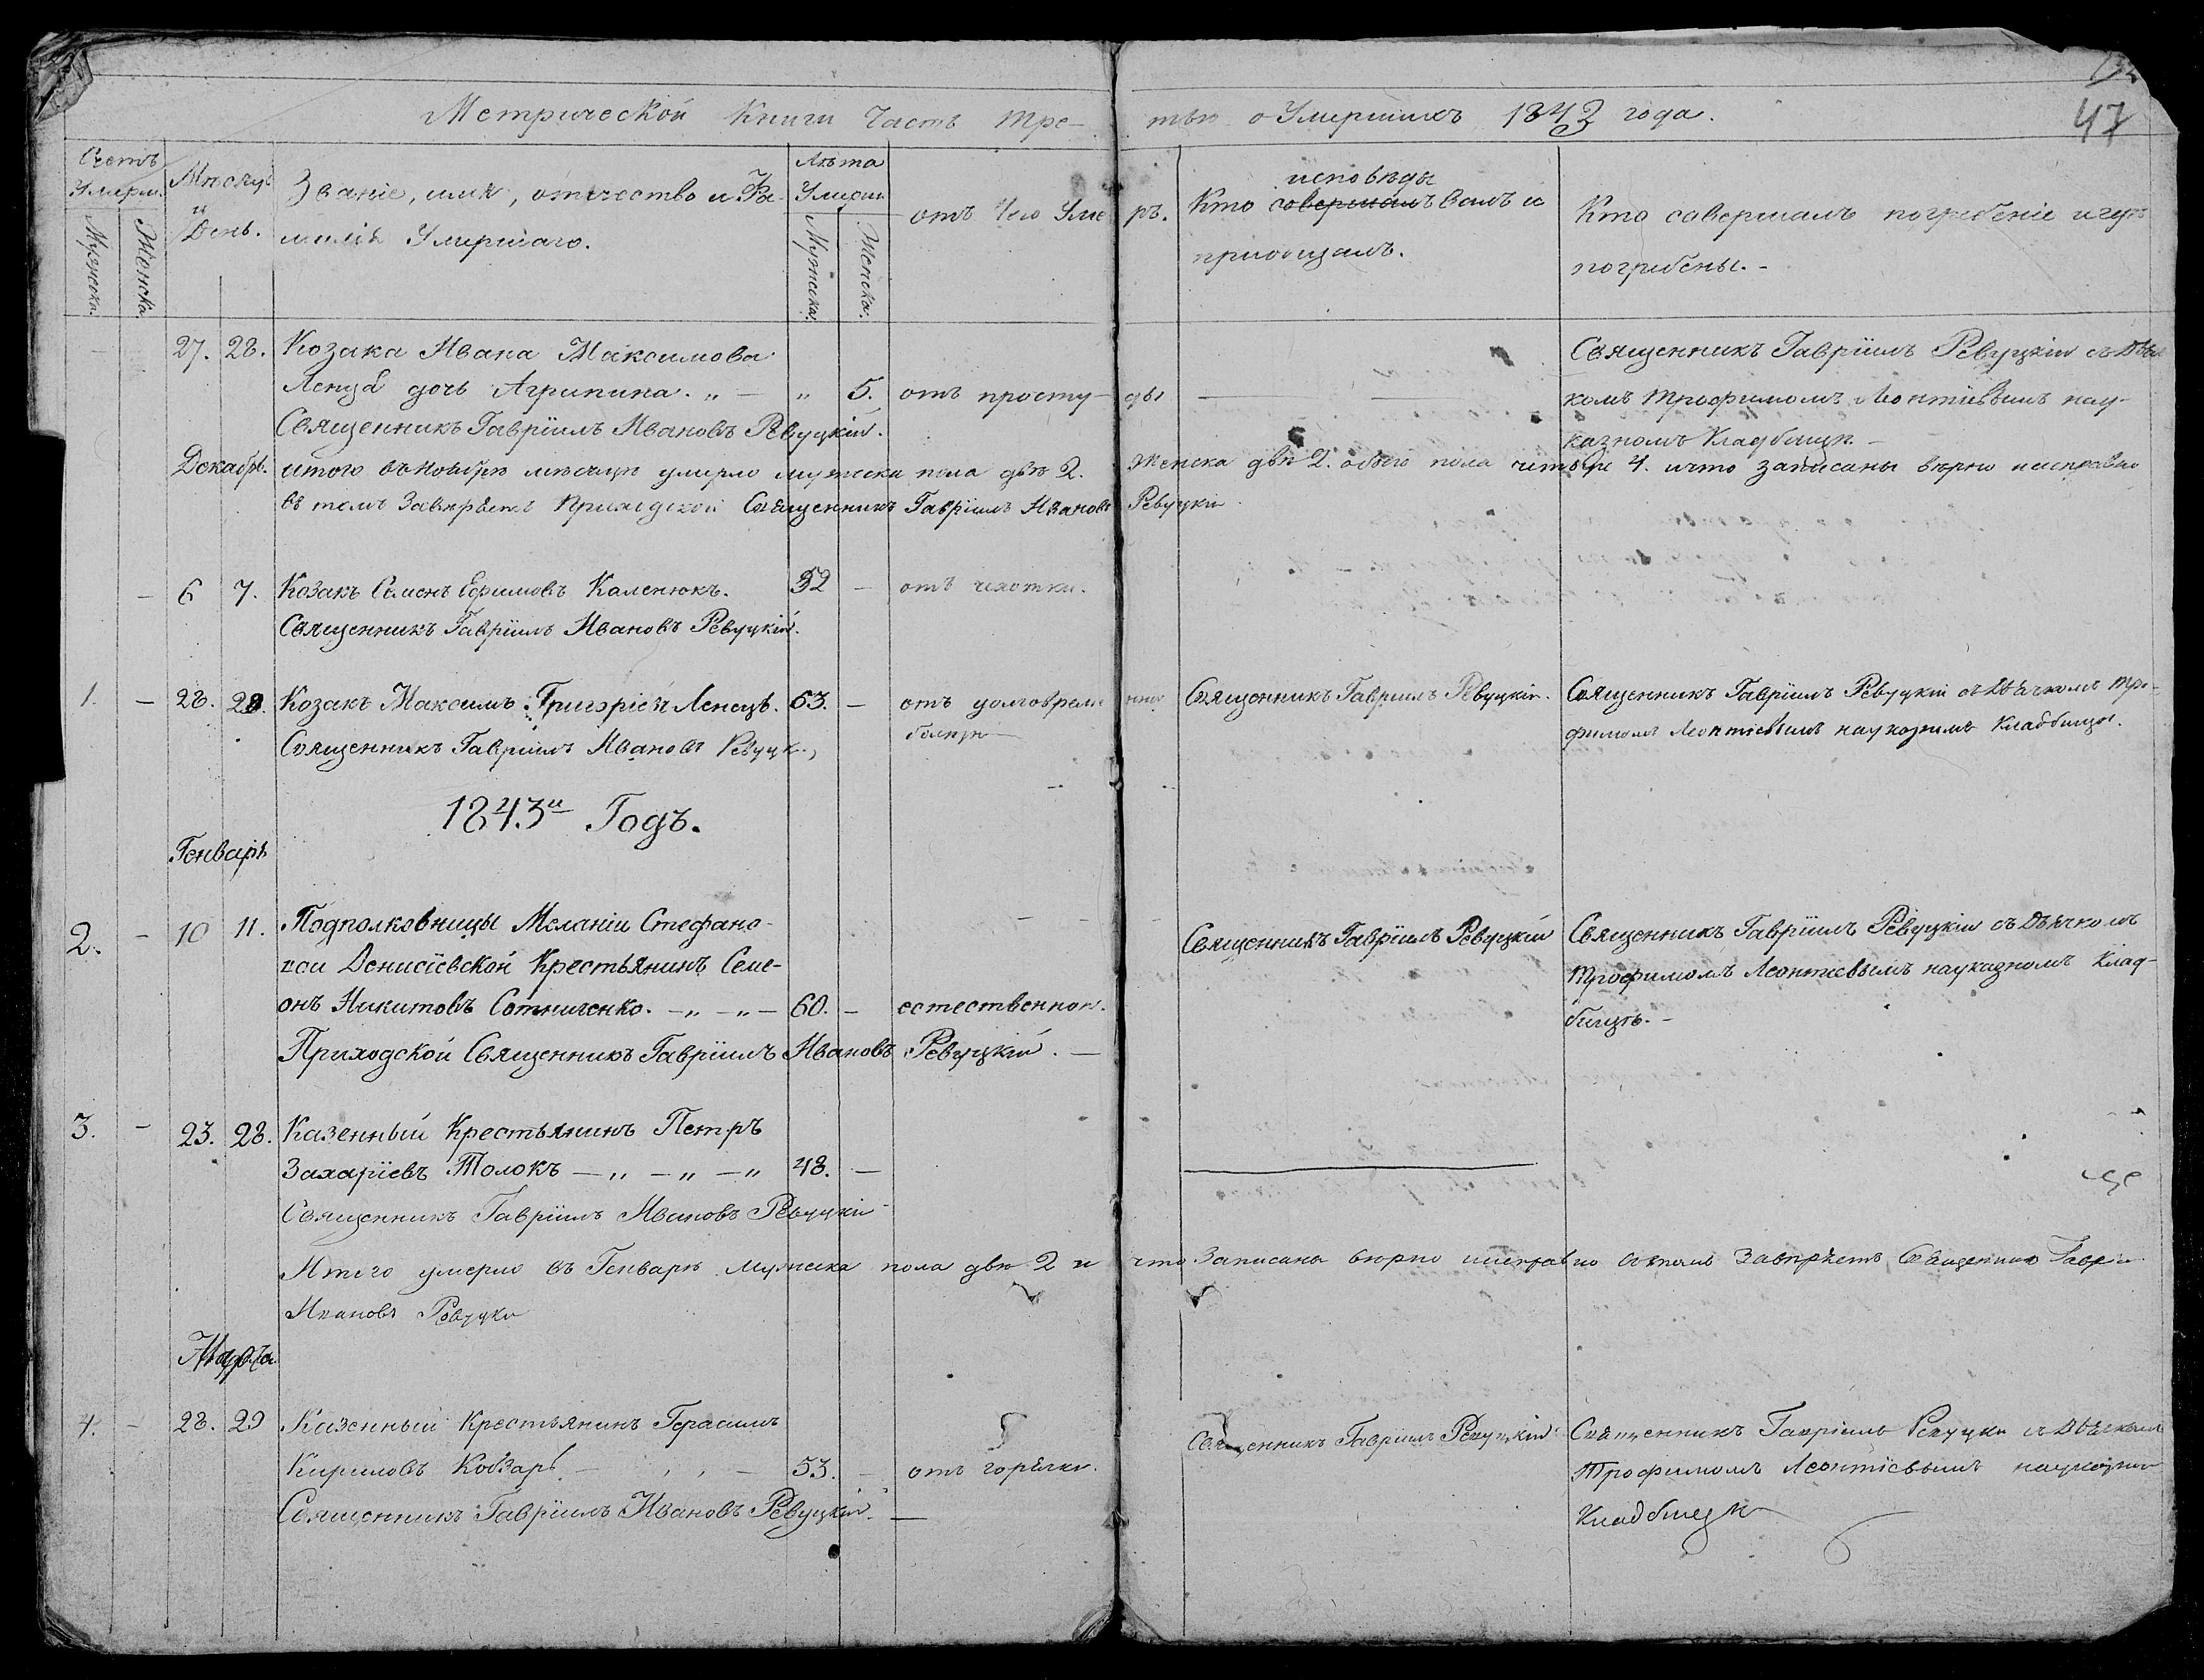 47
Метрической Книги Часть тре- тью о Умершихъ 1843 года.
Счетъ Умерш.
Мужеска.
Женска.
Мѣсяцъ и День.
Званіе, имя, отечество и Фа-
милія Умершаго.
Лѣта Умерш.
Мужеска.
Женска.
отъ Чего Уме ръ.
исповѣды
Кто совершалъ валъ и
приобщалъ.
Кто совершалъ погребеніе и гдѣ
погребены.-
27. 28. Козака Ивана Максимова
Священникъ Гавріилъ Ревуцкій съ Дья
Ленца дочь Агрипина. „ — „ 5. отъ просту- ды — —
комъ Трофимомъ Леонтіевымъ на у-
Священникъ Гавріилъ Ивановъ Ревуцкій.
казномъ Кладбищѣ.-
Декабрь.
итого въ Ноябрѣ мѣсяцѣ умерло мужеска пола двѣ 2. Женска двѣ 2. обоего пола четыре 4. и что записаны вѣрно и исправно
въ томъ Завѣряетъ Приходской Священникъ Гавріилъ Ивановъ Ревуцкій
— 6 7. Козакъ Семенъ Ефимовъ Каленюкъ. 52 — отъ чахотки.
Священникъ Гавріилъ Ивановъ Ревуцкій.
1. — 28. 29. Козакъ Максимъ Григоріевъ Ленецъ. 63. — отъ долговреме нной
Священникъ Гавріилъ Ревуцкій.
Священникъ Гавріилъ Ревуцкій съ Дьячкомъ Тро-
болѣзн
фимомъ Леонтіевымъ на указномъ Кладбищѣ.
Священникъ Гавріилъ Ивановъ Ревуцк.
1843й Годъ.
Генварь
2. — 10 11. Подполковницы Меланіи Стефано-
Священникъ Гавріилъ Ревуцкій
Священникъ Гавріилъ Ревуцкій съ Дьячкомъ
вой Денисіевской Крестьянинъ Семе-
Трофимомъ Леонтіевымъ на указномъ Клад-
онъ Никитовъ Сотниченко. — „ — „ — 60. — естественною.
бищѣ.-
Приходской Священникъ Гавріилъ Ивановъ Ревуцкій. —
3. — 23. 28. Казенный Крестьянинъ Петръ
Захаріевъ Толокъ — „ — „ — „ 48. —
Священникъ Гавріилъ Ивановъ Ревуцкій
Итого умерло въ Генварѣ мужеска пола двѣ 2 и что Записаны вѣрно и исправно въ томъ Завѣряетъ Священникъ Гаврі
Ивановъ Ревуцкі
Марта
4. — 28. 29 Казенный Крестьянинъ Герасимъ
Священникъ Гавріилъ Ревуцкій
Священникъ Гавріилъ Ревуцкі съ Дьячкомъ
Кириловъ Кобзарь — 53. — отъ горячки.
Трофимомъ Леонтіевымъ на указном
Священникъ Гавріилъ Ивановъ Ревуцкій. —
Кладбищѣ